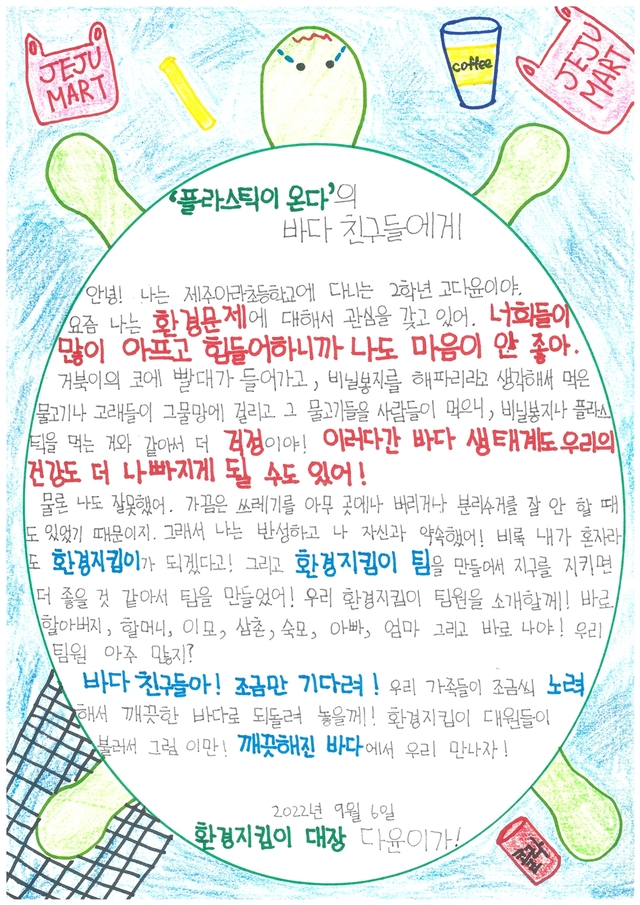 JEJU
MART
coffee
JEJU
MART
'플라스틱이 온다'의
바다 친구들에게
안녕! 나는 제주아라초등학교에 다니는 2학년 고다윤이야.
요즘 나는 환경문제에 대해서 관심을 갖고 있어. 너희들이
많이 아프고 힘들어하니까 나도 마음이 안 좋아.
거북이의 코에 빨대가 들어가고, 비닐봉지를 해파리라고 생각해서 먹은
물고기나 고래들이 그물망에 걸리고 그 물고기들을 사람들이 먹으니, 비닐봉지나 플라스
틱을 먹는 거와 같아서 더 걱정이야! 이러다간 바다 생태계도 우리의
건강도 더 나빠지게 될 수도 있어!
물론 나도 잘못했어. 가끔은 쓰레기를 아무 곳에나 버리거나 분리수거를 잘 안 할 때
도 있었기 때문이지. 그래서 나는 반성하고 나 자신과 약속했어! 비록 내가 혼자라
도 환경지킴이가 되겠다고! 그리고 환경지킴이 팀을 만들어서 지구를 지키면
더 좋을 것 같아서 팀을 만들었어! 우리 환경지킴이 팀원을 소개할께! 바로
할아버지, 할머니, 이모, 삼촌, 숙모, 아빠, 엄마 그리고 바로 나야! 우리
팀원 아주 많지?
바다 친구들아! 조금만 기다려! 우리 가족들이 조금씩 노력
해서 깨끗한 바다로 되돌려 놓을께! 환경지킴이 대원들이
불러서 그럼 이만! 깨끗해진 바다에서 우리 만나자!
2022년 9월 6일
환경지킴이 대장 다윤이가!